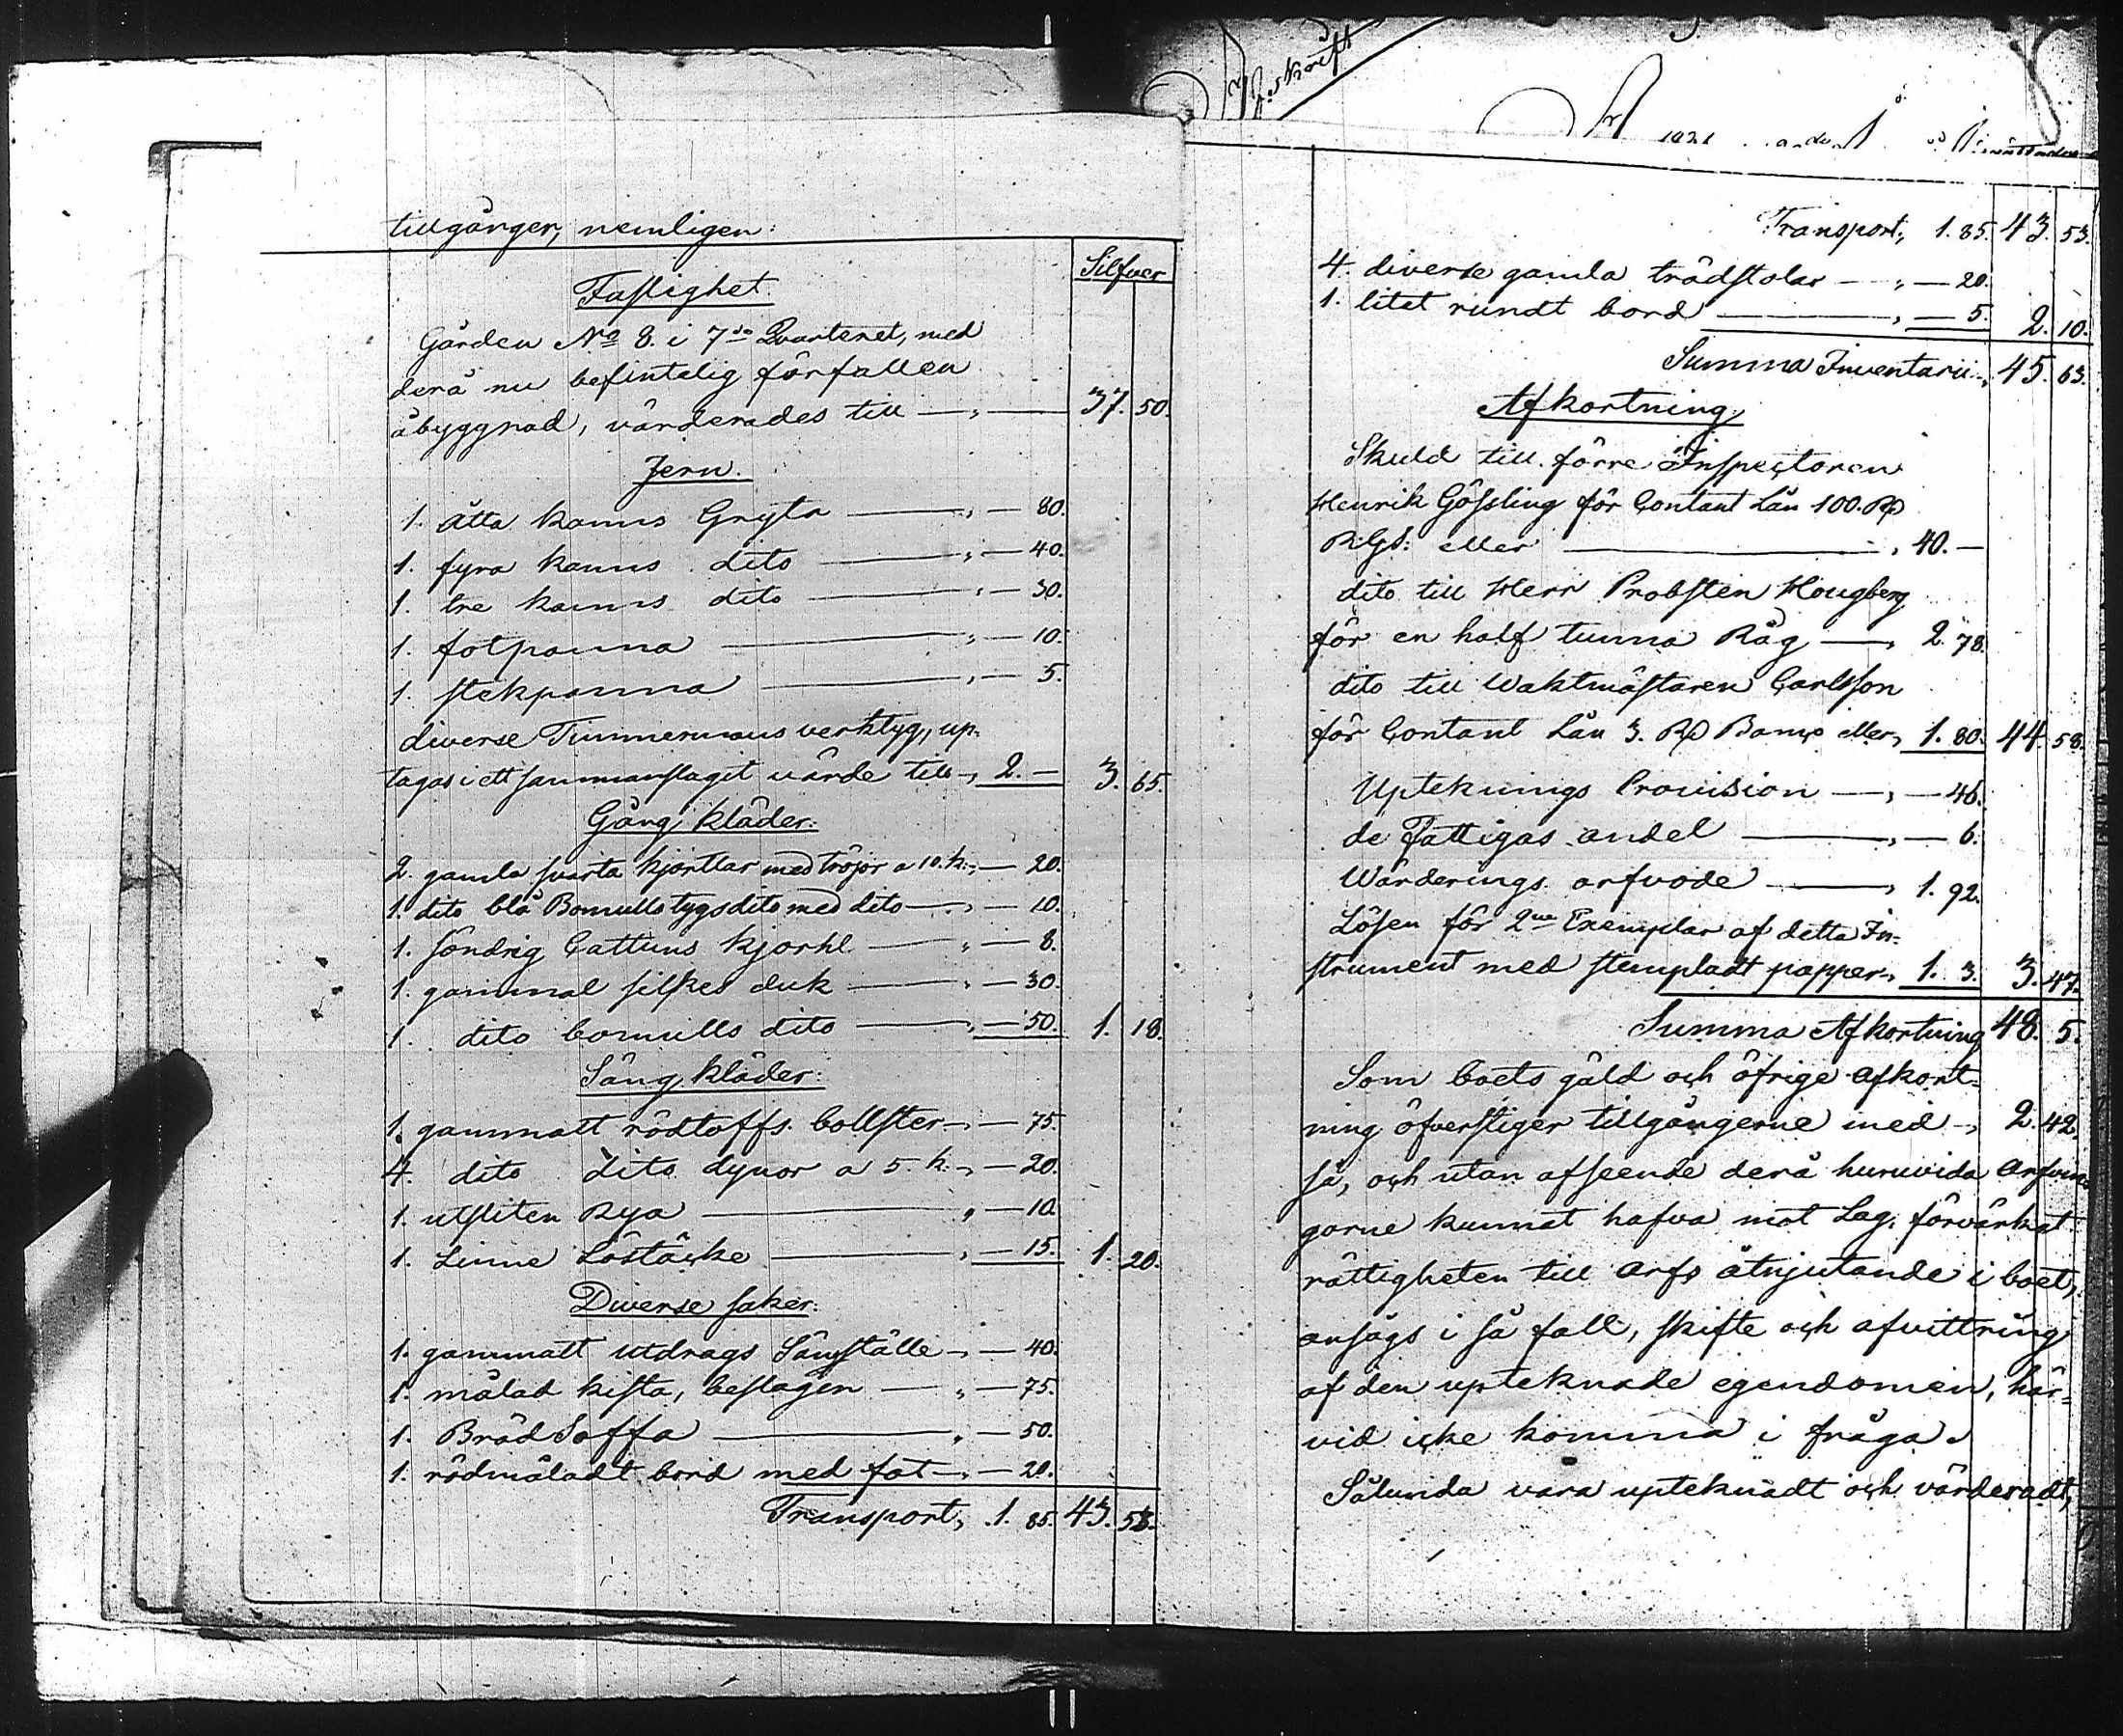 tillgånger, nemligen:
Silfver
Fastighet
Gården No 8. i 7de Qvarteret, med
derå nu befintelig förfallen
åbyggnad, värderades till — " — 37. 50.
Jern.
1. åtta kanns Gryta — " — 80.
1. fyra kanns dito — " — 40.
1. tre kanns dito — " — 30.
1. fotpanna — " — 10.
1. stekpanna — " — 5.
diverse Timmermans verktyg, up-
tagas i ett sammanslaget värde till " 2. — 3. 65.
Gång kläder:
2. gamla svarta kjortlar med tröjor a 10. k: " — 20.
1. dito blå Bomulls tygs dito med dito — " — 10.
1. söndrig Cattuns kjorhl — " — 8.
1. gammal silkes duk — " — 30.
1. dito bomulls dito — " — 50. 1. 18.
Säng kläder:
1. gammalt rödtoffs bollster — " — 75.
4. dito dito dynor a 5. k: " — 20.
1. utsliten Rya — " — 10.
1. Linne Löstäcke — " — 15. 1. 20.
Diverse saker:
1. gammalt utdrags Sängställe — " — 40.
1. målad kista, beslagen — " — 75.
1. Bräd Soffa — " — 50.
1. rödmåladt bord med fot — " — 20.
Transport, 1. 85. 43. 53.
Afskrift
Transport, 1. 85. 43. 53.
4. diverse gamla trädstolar — " — 20.
1. litet rundt bord — " — 5. 2. 10.
Summa Inventarii " 45. 63.
Afkortning
Skuld till förre Inspectoren
Henrik Gössling för Contant Lån 100. Rd
RGs: eller — " 40. —
dito till Herr Probsten Hougberg
för en half tunna Råg — " 2. 78.
dito till Waktmästaren Carlsson
för Contant Lån 3. Rd Banco eller " 1. 80. 44. 58.
Upteknings Provision — " — 46.
de Fattigas andel — " — 6.
Wärderings arfvode — " 1. 92.
Lösen för 2ne Exemplar af detta In-
strument med stempladt papper " 1. 3. 3. 47.
Summa Afkortning 48. 5.
Som boets gäld och öfrige afkort-
ning öfverstiger tillgångerne med " 2. 42.
så, och utan afseende derå huruvida arfvin-
garne kunnat hafva mot Lag, förvärkat
rättigheten till arfs åtnjutande i boet,
ansågs i så fall, skifte och afvittring
af den upteknade egendomen, här-
vid icke komma i fråga.
Sålunda vara upteknadt och värderadt,